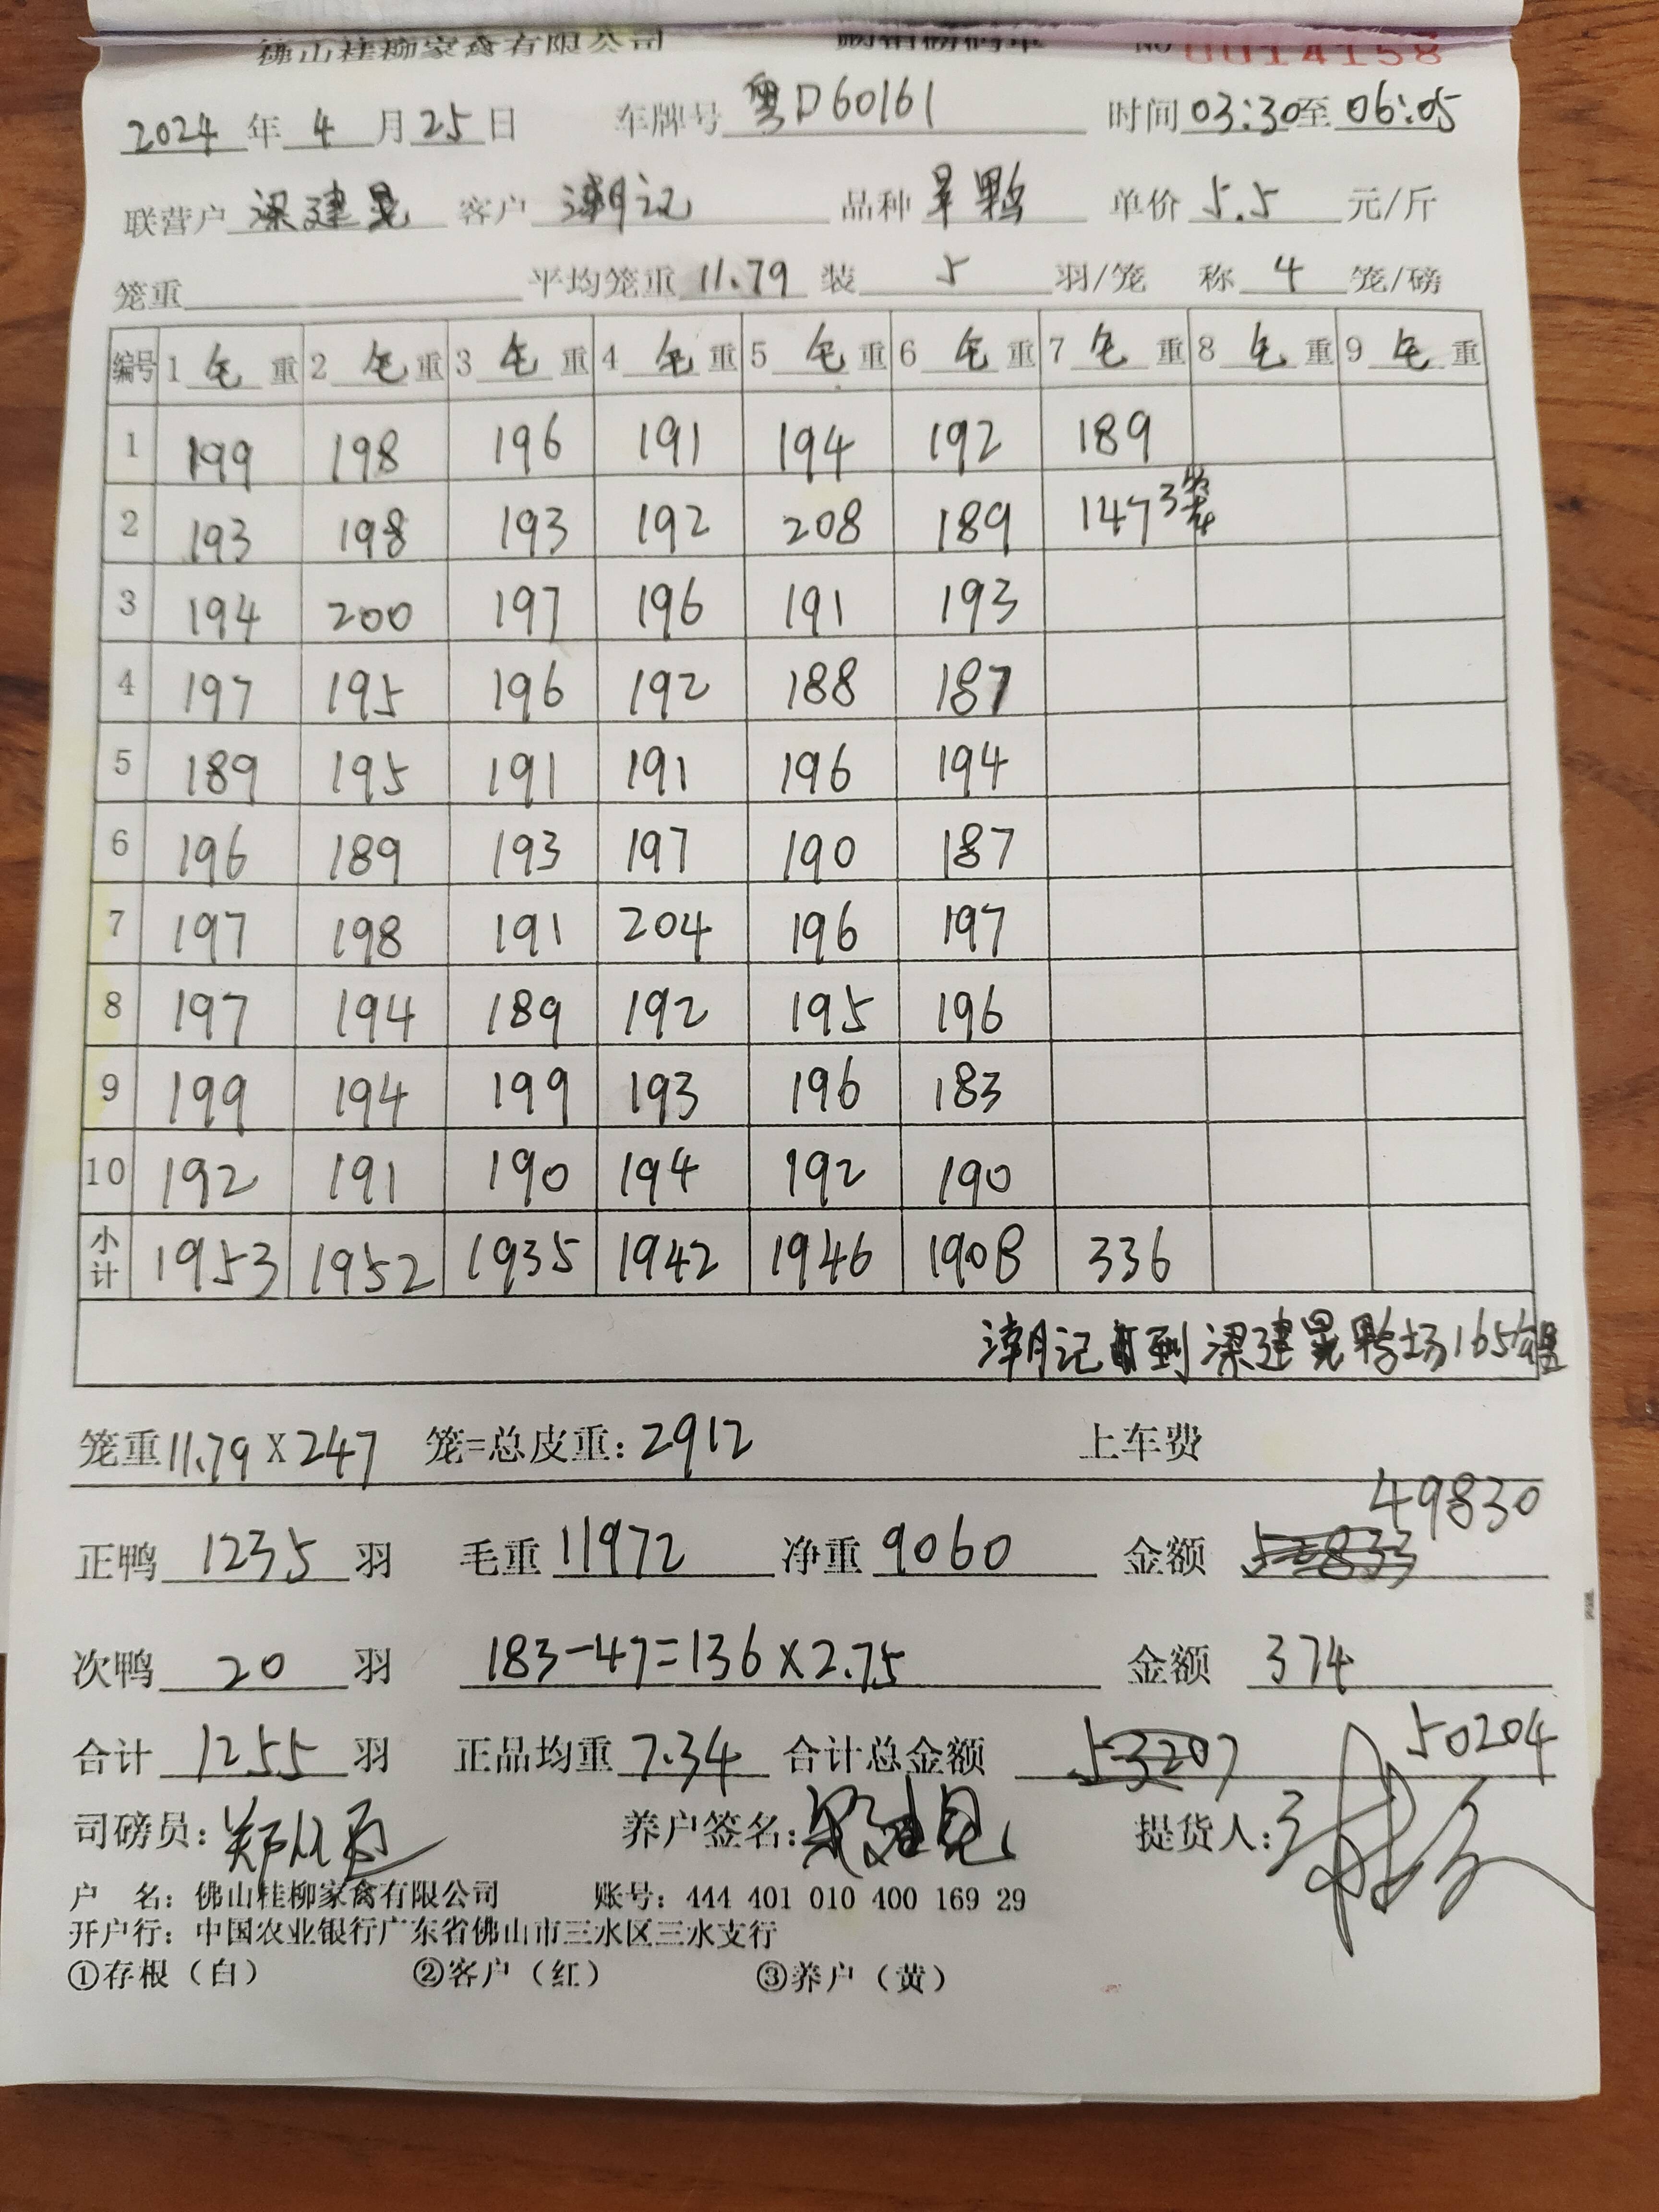 佛山桂柳家禽有限公司 购销磅码单 No 0014158
2024 年 4 月 25 日 车牌号 粤D60161 时间 03:30 至 06:05
联营户 梁建晃 客户 潮记 品种 旱鸭 单价 5.5 元/斤
笼重 平均笼重 11.79 装 5 羽/笼 称 4 笼/磅
编号 1 毛 重 2 毛 重 3 毛 重 4 毛 重 5 毛 重 6 毛 重 7 毛 重 8 毛 重 9 毛 重
1 199 198 196 191 194 192 189
2 193 198 193 192 208 189 147 3笼
3 194 200 197 196 191 193
4 197 195 196 192 188 187
5 189 195 191 191 196 194
6 196 189 193 197 190 187
7 197 198 191 204 196 197
8 197 194 189 192 195 196
9 199 194 199 193 196 183
10 192 191 190 194 192 190
小计 1953 1952 1935 1942 1946 1908 336
潮记 到梁建晃鸭场165
笼重 11.79 X 247 笼=总皮重: 2912 上车费
正鸭 1235 羽 毛重 11972 净重 9060 金额 49830
次鸭 20 羽 183-47=136×2.75 金额 374
合计 1255 羽 正品均重 7.34 合计总金额 53207 50204
司磅员: 养户签名: 提货人:
户 名: 佛山桂柳家禽有限公司 账号: 444 401 010 400 169 29
开户行: 中国农业银行广东省佛山市三水区三水支行
①存根（白） ②客户（红） ③养户（黄）